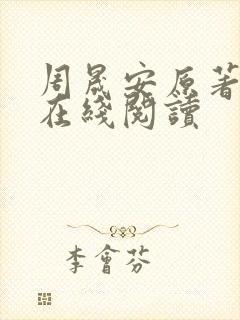 周晟安原著
在綫閱讀
李會芬